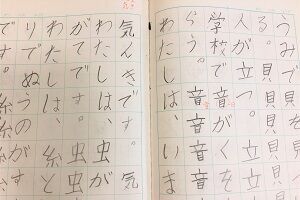 うみで貝
る。貝貝貝
人が立つ。立立
学校で音がくを
らう。音音音
わたしは、いま
気んきです。気
わたしは、虫が
がでた。虫虫
わたしは、糸と
りでぬうの
です。糸糸が